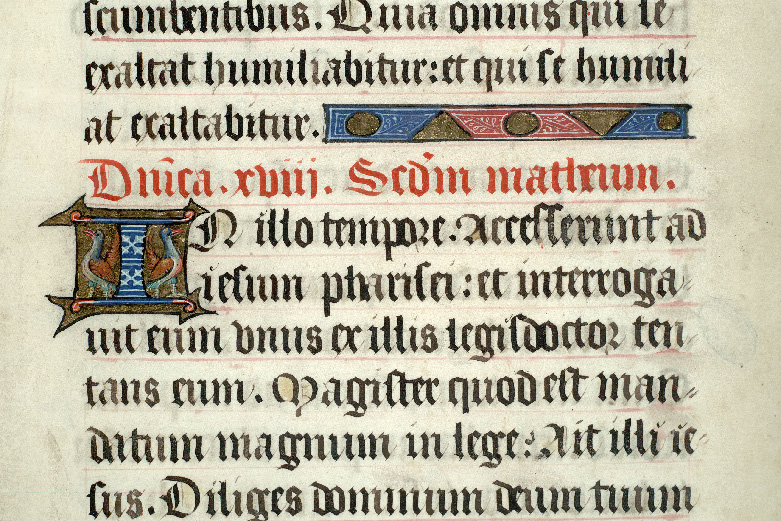 scumbentibus. Quia omnis qui se
exaltat humiliabitur: et qui se humili
at exaltabitur.
Dnica. xviii. Scdm matheum.
IN illo tempore. Accesserunt ad
iesum pharisei: et interroga
uit eum vnus ex illis legisdoctor ten
tans eum. Magister quod est man
datum magnum in lege: Ait illi ie
sus. Diliges dominum deum tuum